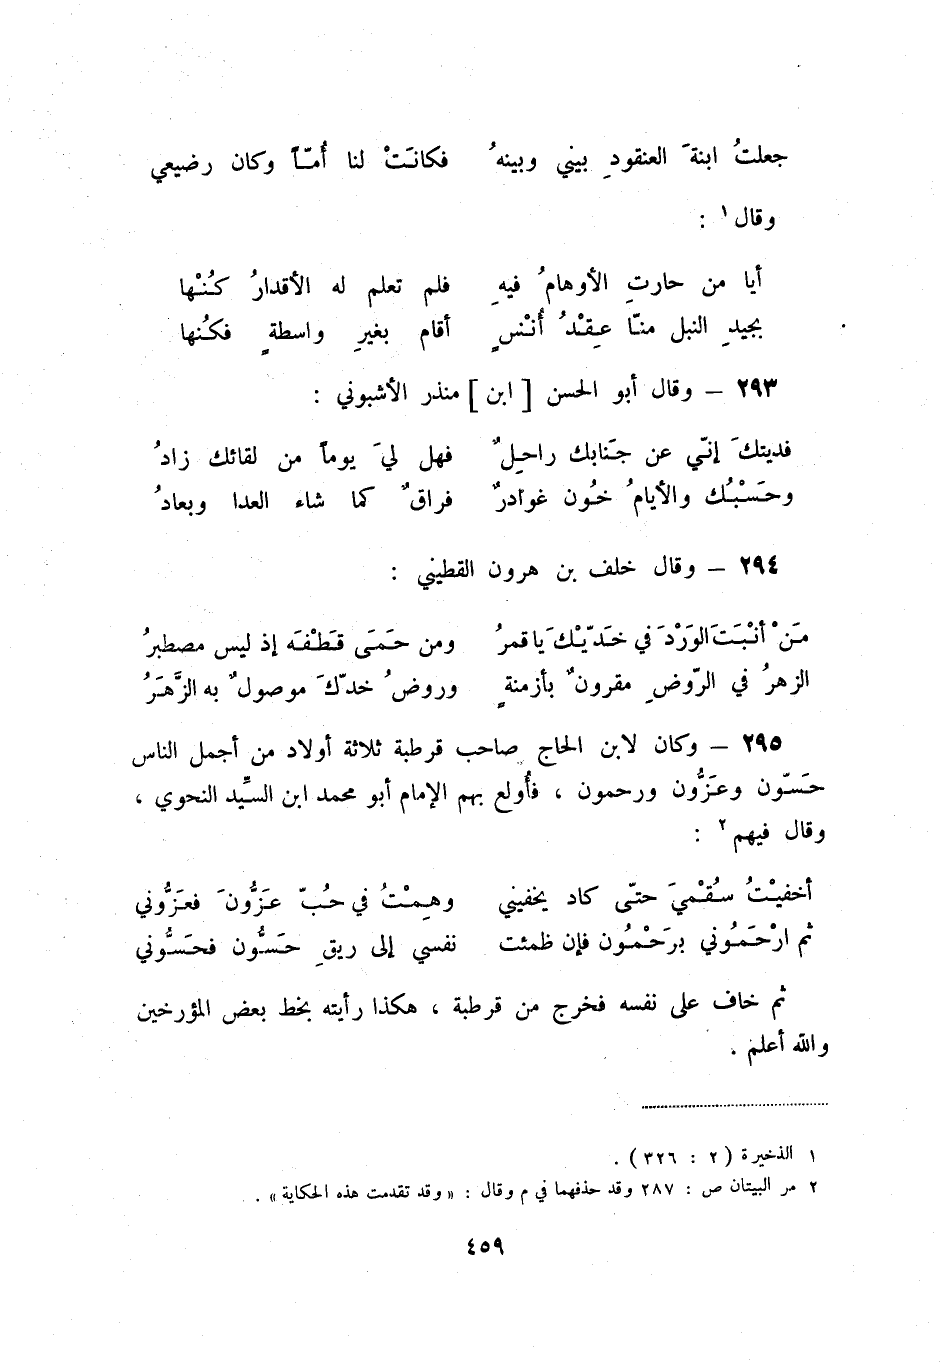 جعلتُ ابنةَ العنقودِ بيني وبينهُ فكانَتْ لنا أُمّاً وكان رضيعي
وقال١ :
أيا من حارتِ الأوهامُ فيهِ فلم تعلم له الأقدارُ كُنْها
بجيدِ النبل منّا عِقْدُ أُنْسٍ أقام بغيرِ واسطةٍ فكُنها
٢٩٣ – وقال أبو الحسن [ ابن ] منذر الأشبوني :
فديتكَ إنّي عن جَنابك راحِلٌ فهل ليَ يوماً من لقائك زادُ
وحَسْبُك والأيامُ خُون غوادرٌ فراقٌ كما شاء العدا وبعادُ
٢٩٤ – وقال خلف بن هرون القطيني :
مَنْ أنْبَتَ الوَرْدَ في خَدّيْكَ يا قمرُ ومن حَمَى قَطْفَه إذ ليس مصطبرُ
الزهرُ في الرّوضِ مقرونٌ بأزمنةٍ وروضُ خدّكَ موصولٌ به الزَّهَرُ
٢٩٥ – وكان لابن الحاج صاحب قرطبة ثلاثة أولاد من أجمل الناس
حَسّون وعَزُّون ورحمون ، فأُولع بهم الإمام أبو محمد ابن السيِّد النحوي ،
وقال فيهم٢ :
أخفيْتُ سُقْميَ حتّى كاد يخفيني وهِمْتُ في حُبّ عَزُّونَ فعَزُّوني
ثم ارْحَمُوني برَحْمُون فإن ظمئت نفسي إلى ريقِ حَسُّون فحَسُّوني
ثم خاف على نفسه فخرج من قرطبة ، هكذا رأيته بخط بعض المؤرخين
والله أعلم .
١ الذخيرة ( ٢ : ٣٢٦ ) .
٢ مر البيتان ص : ٢٨٧ وقد حذفهما في م وقال : « وقد تقدمت هذه الحكاية » .
٤٥٩